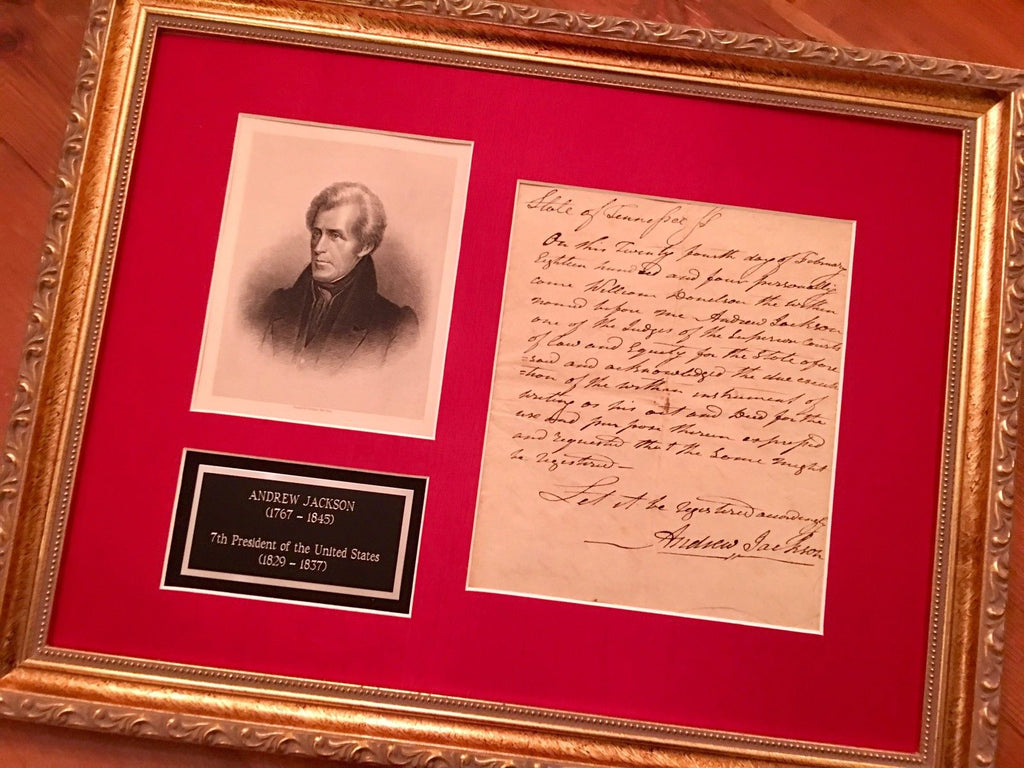 ANDREW JACKSON
(1767 – 1845)
7th President of the United States
(1829 – 1837)
State of Tennessee
On this Twenty fourth day of February
Eighteen hundred and four personally
came William Donelson the within
named before me Andrew Jackson
one of the Judges of the Superior Courts
of law and Equity for the State afore
=said and acknowledged the due execu
=tion of the within instrument of
writing as his act and Deed for the
use and purpose therein expressed
and requested that the same might
be registered—
Let it be registered accordingly
Andrew Jackson